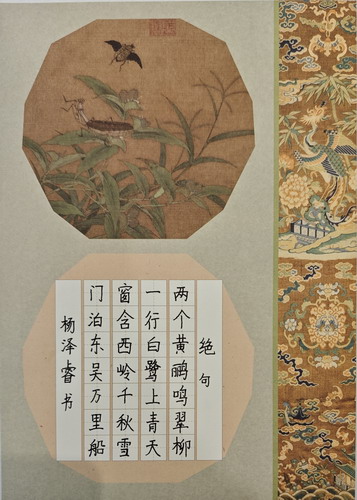 绝句
两个黄鹂鸣翠柳
一行白鹭上青天
窗含西岭千秋雪
门泊东吴万里船
杨泽睿书